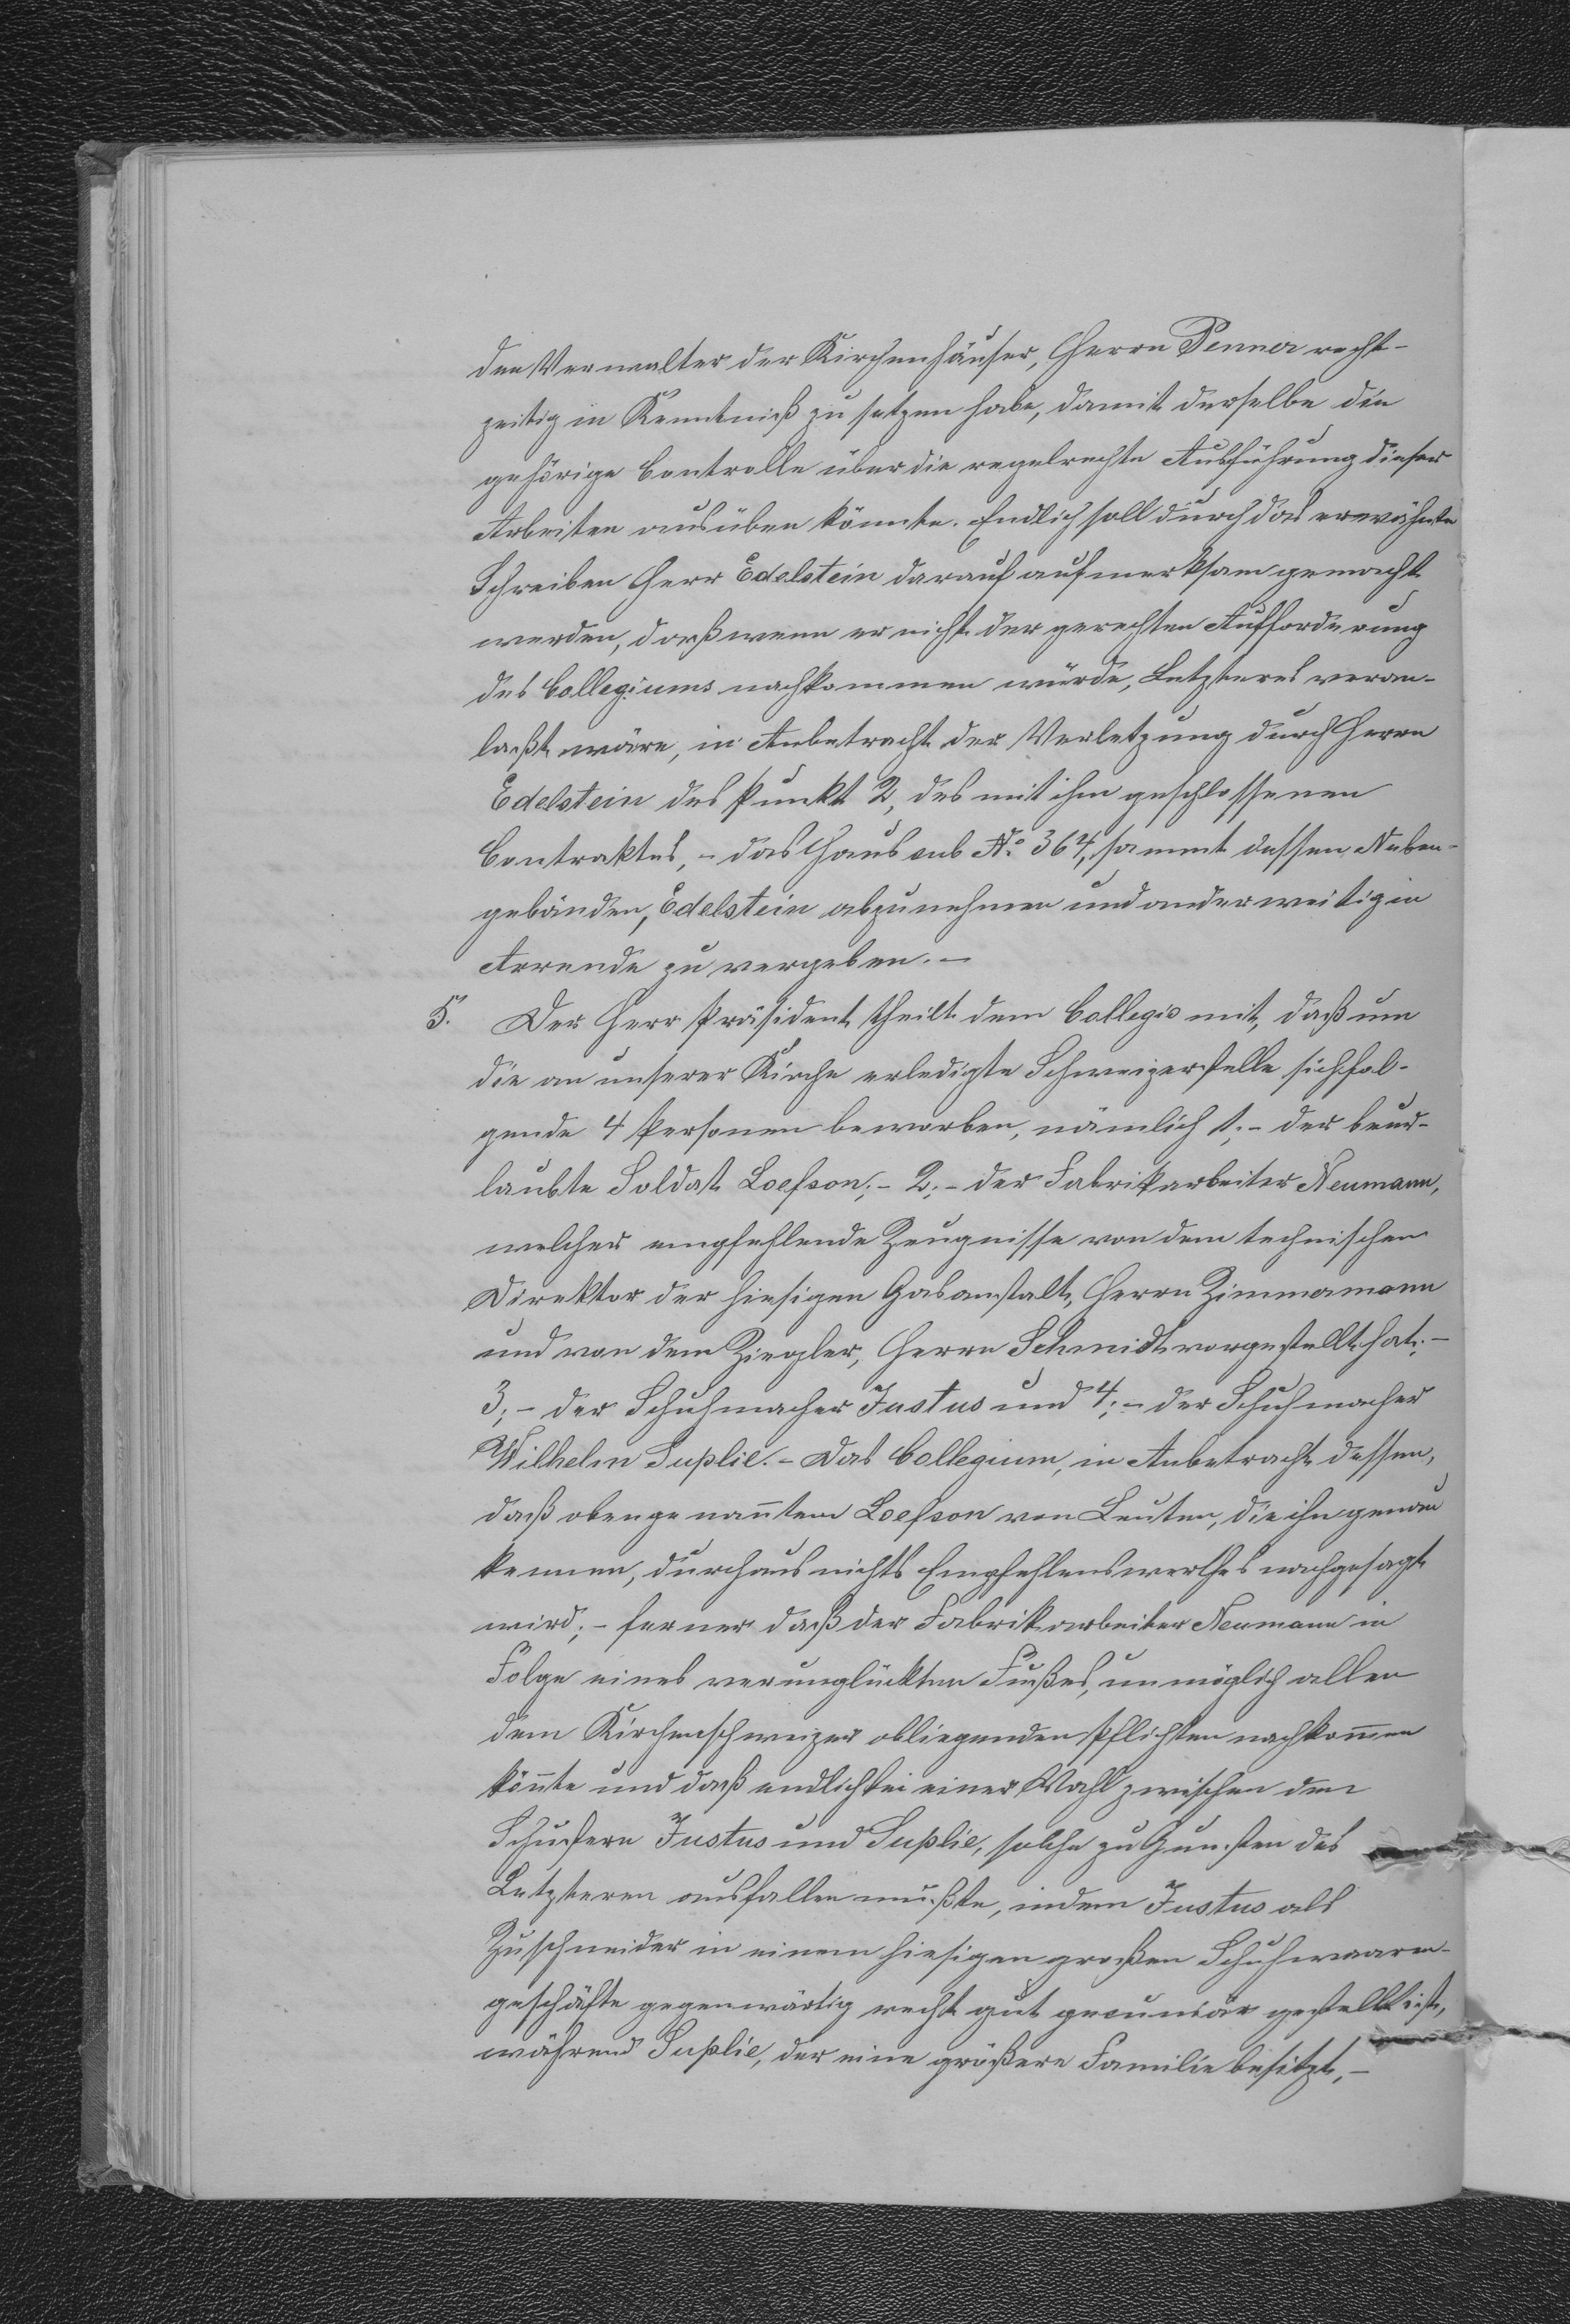 den Verwalter der Kirchenhäuser, Herrn Penner recht-
zeitig in Kenntniß zu setzen habe, damit derselbe die
gehörige Controlle über die regelrechte Ausführung dieser
Arbeiten ausüben könnte. Endlich soll durch das erwähnte
Schreiben Herr Edelstein darauf aufmerksam gemacht
werden, daß wenn er nicht der gerechten Aufforderung
des Collegiums nachkommen würde, Letzteres veran-
laßt wäre, in Anbetracht der Verletzung durch Herrn
Edelstein des Punkt 2, des mit ihm geschlossenen
Contraktes, - das Haus sub No. 364, sammt dessen Neben-
gebäuden, Edelstein abzunehmen und anderweitig in
Arrende zu vergeben. -
5. Der Herr Präsident theilt dem Collegio mit, daß um
die an unserer Kirche erledigte Schweizerstelle sich fol-
gende 4 Personen beworben, nämlich 1; - der beur-
laubte Soldat Loefson; - 2; - der Fabrikarbeiter Neumann,
welcher empfehlende Zeugnisse von dem technischen
Direktor der hiesigen Gasanstalt, Herrn Zimmermann
und von dem Ziegler, Herrn Schmidt vorgestellt hat; -
3; - der Schuhmacher Justus und 4; - der Schuhmacher
Wilhelm Suplie. - Das Collegium, in Anbetracht dessen,
daß obengenanntem Loefson von Leuten, die ihn genau
kennen, durchaus nichts Empfehlenswerthes nachgesagt
wird; - ferner daß der Fabrikarbeiter Neumann in
Folge eines verunglückten Fußes, unmöglich allen
dem Kirchenschweizer obliegenden Pflichten nachkommen
könnte und daß endlich bei einer Wahl zwischen den
Schustern Justus und Suplie, solche zu Gunsten des
Letzteren ausfallen mußte, indem Justus als
Zuschneider in einem hiesigen großen Schuhwaaren-
geschäfte gegenwärtig recht gut pecuniär gestellt ist,
während Suplie, der eine größere Familie besitzt, -